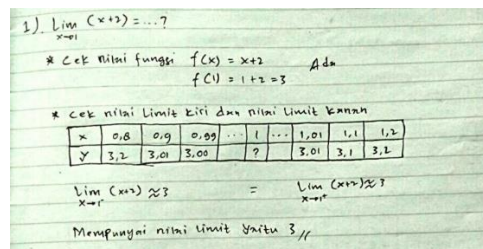 1) Lim (x+2) = ...?
x→1
* Cek nilai fungsi f(x) = x+2 Ada
f(1) = 1+2 = 3
* Cek nilai Limit Kiri dan nilai Limit Kanan
x 0,8 0,9 0,99 ... 1 ... 1,01 1,1 1,2
y 3,2 3,01 3,00 ? 3,01 3,1 3,2
Lim (x+2) ≈ 3 = Lim (x+2) ≈ 3
x→1⁻ x→1⁺
Mempunyai nilai limit yaitu 3 //